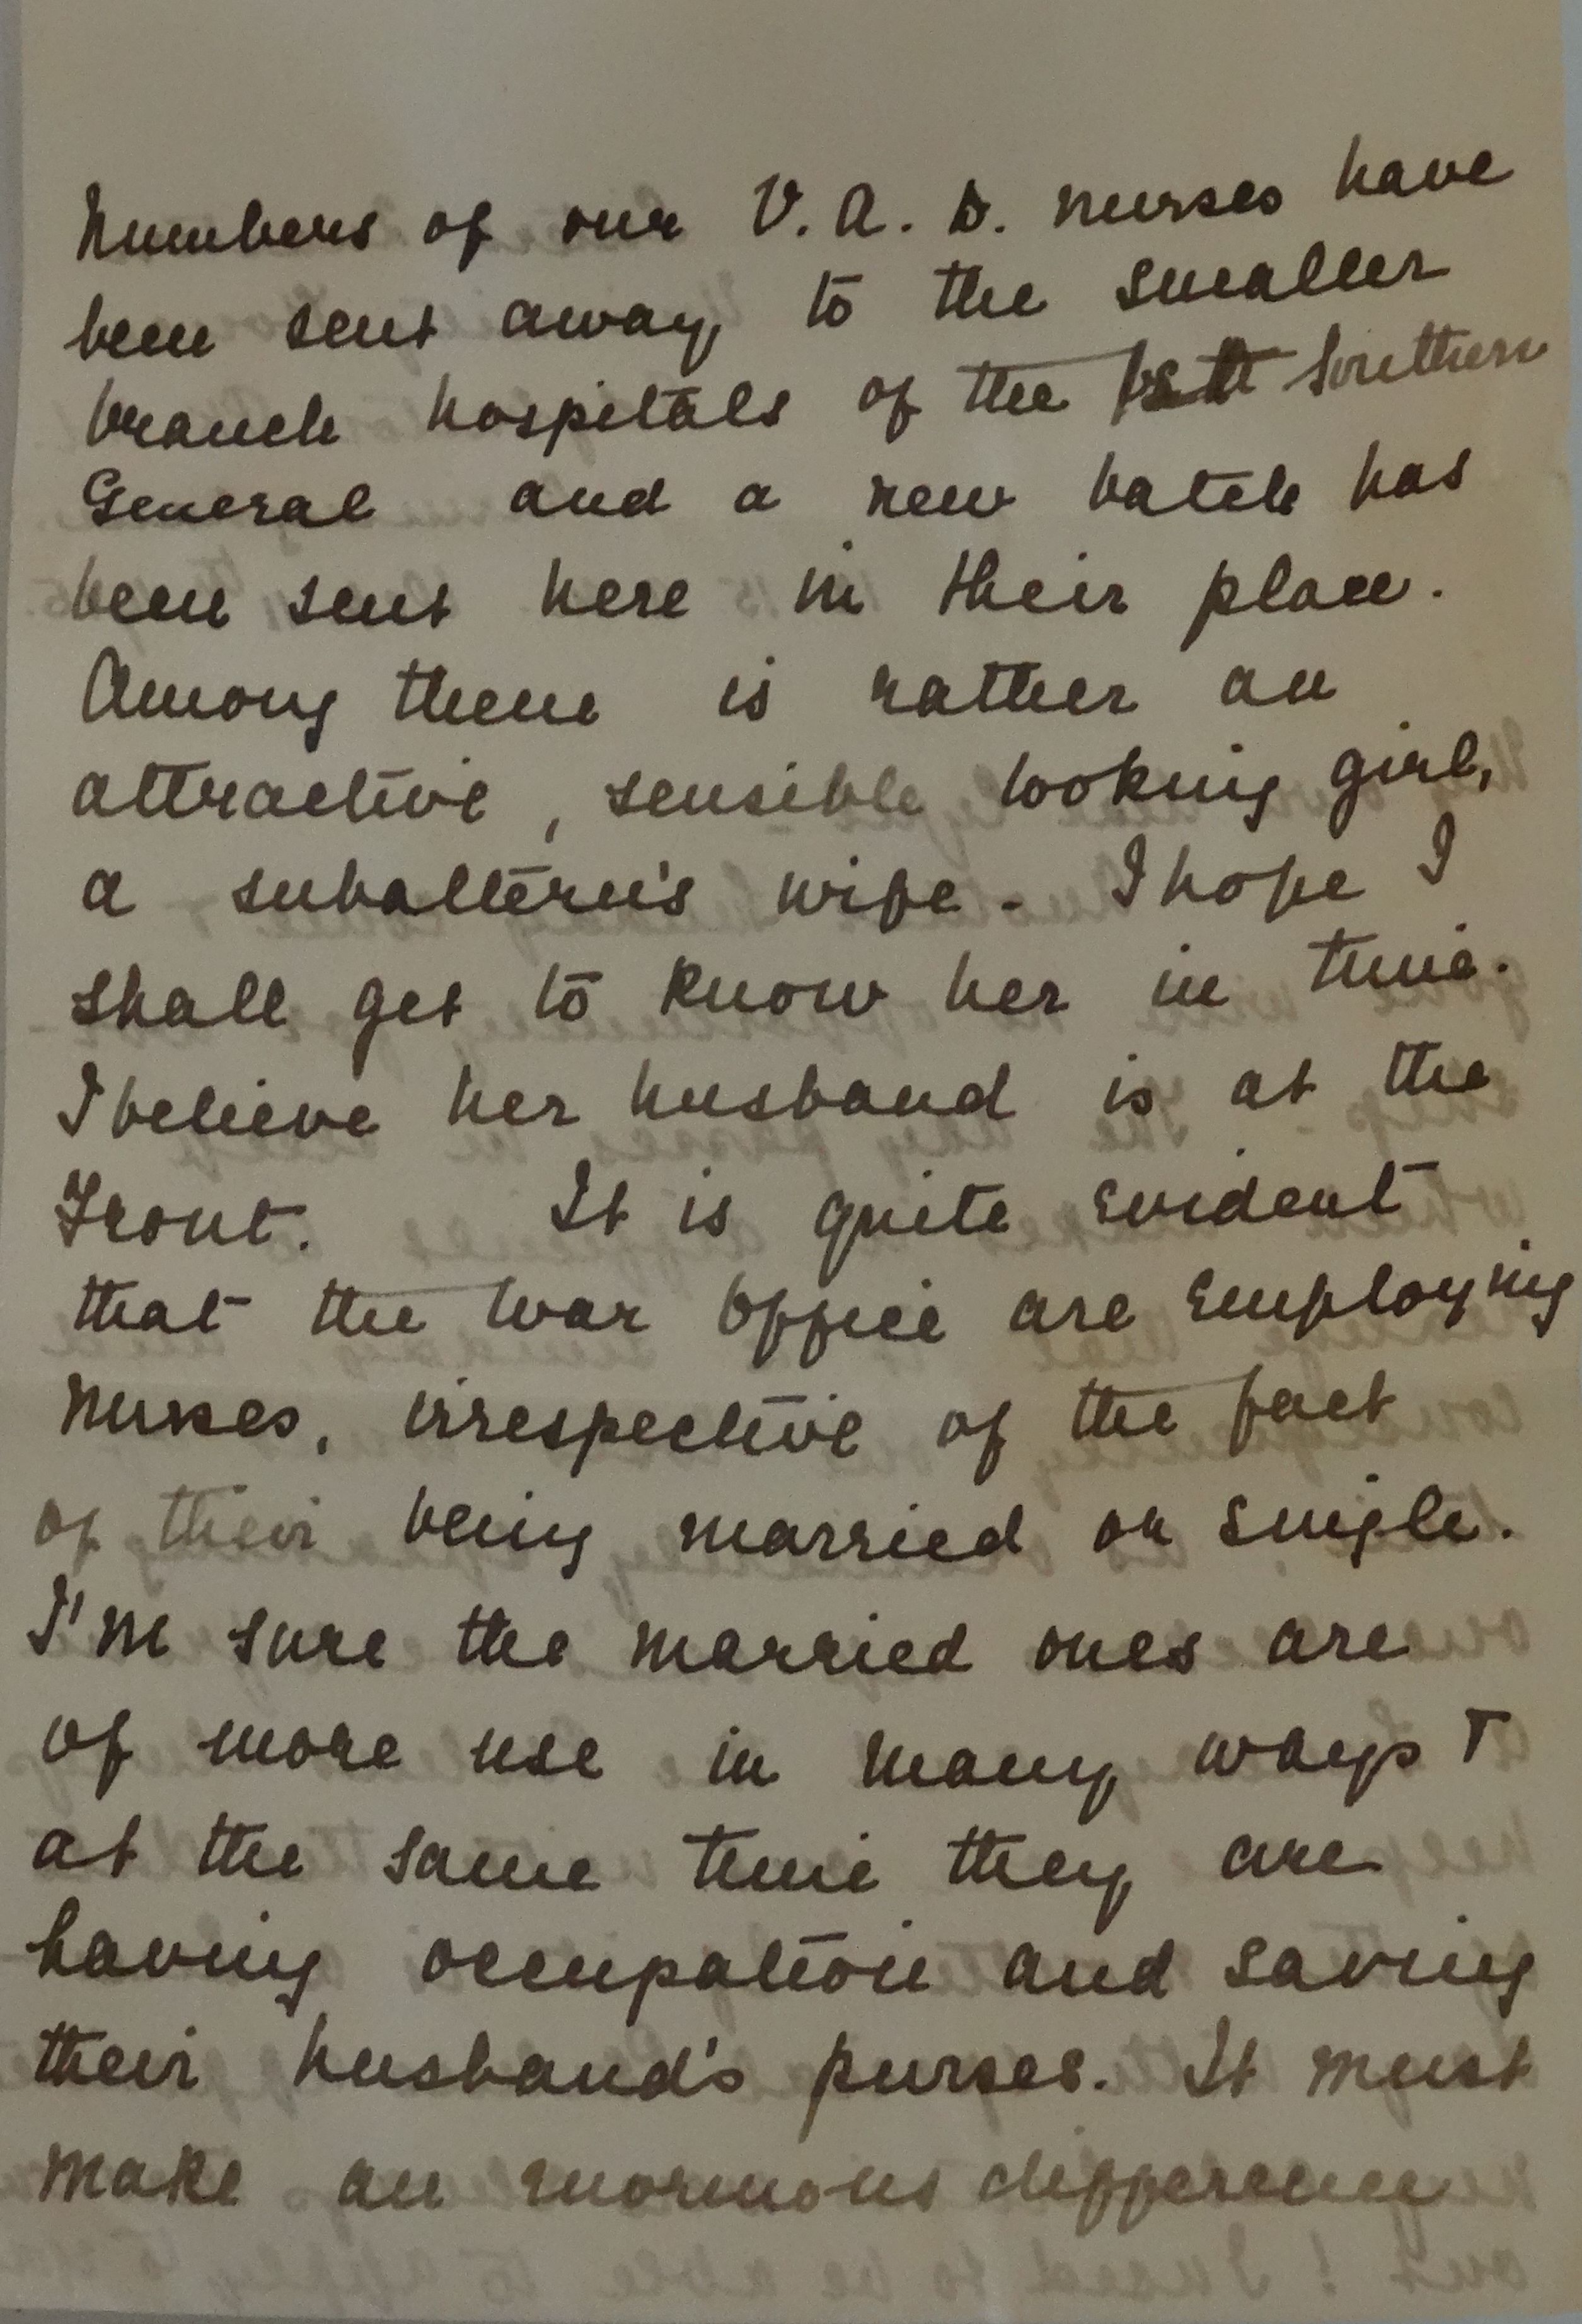 Numbers of our V.A.D. nurses have
been sent away to the smaller
branch hospitals of the Southern
General and a new batch has
been sent here in their place.
Among them is rather an
attractive, sensible looking girl,
a subaltern's wife - I hope I
shall get to know her in time.
I believe her husband is at the
Front. It is quite evident
that the War Office are employing
nurses, irrespective of the fact
of their being married or single.
I'm sure the married ones are
of more use in many ways +
at the same time they are
having occupation and saving
their husband's purses. It must
make an enormous difference